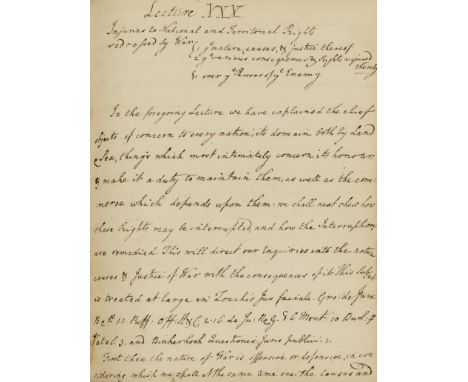 Lecture XXX
Injuries to National and Territorial Right
redressed by War, 1 ye nature, causes, & justice thereof
2 ye various consequences & Rights acquired
thereby
& over ye Persons of ye Enemy
In the foregoing Lecture we have explained the chief
objects of concern to every nation; its domain both by Land
& Sea, things which most intimately concern its honour
& make it a duty to maintain them, as well as the com-
merce which depends upon them. we shall next shew how
these Rights may be interrupted and how the Interruptions
are remedied. This will direct our Enquiries into the nature
causes & Justice of War with the consequences of it. This Subject
is treated at large in Zouchis Jus faciale. Gro: de Jure
Bel. Puff: Off. H & C 2.16 de Ju: N & G: 8.6 Mont: 10 Burl: 4
Vatel 3. and Binkershoek Questiones Juris public: 1.
First then the nature of War is offensive or defensive, in con-
sidering which we shall at the same time see the causes and